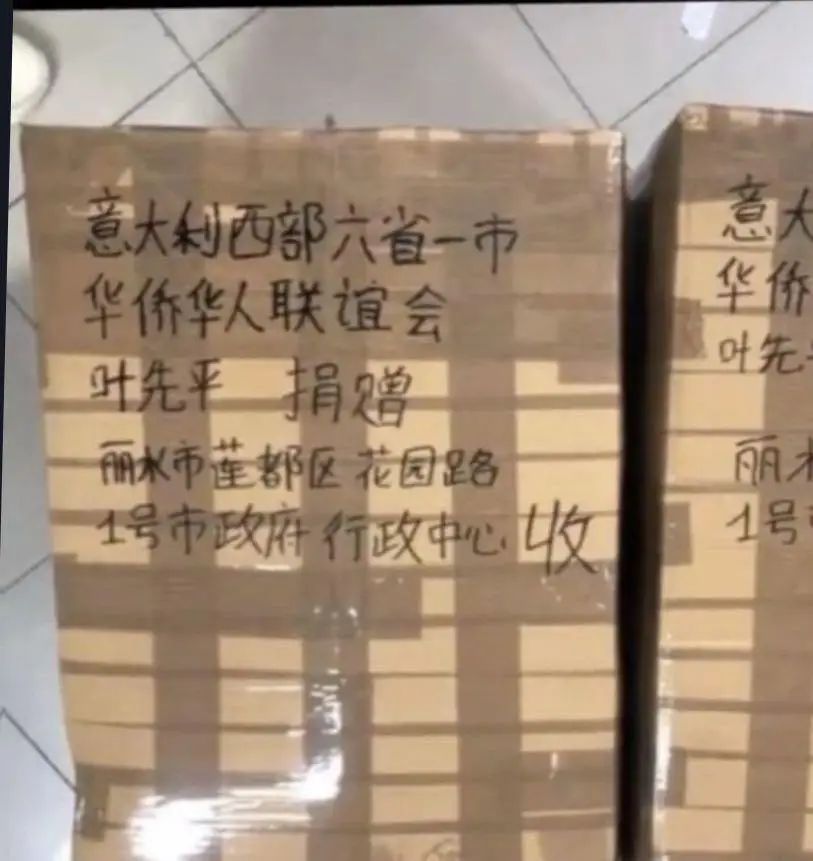 意大利西部六省一市
华侨华人联谊会
叶先平 捐赠
丽水市莲都区花园路
1号市政府行政中心 收
意大
华侨
叶先
丽水
1号